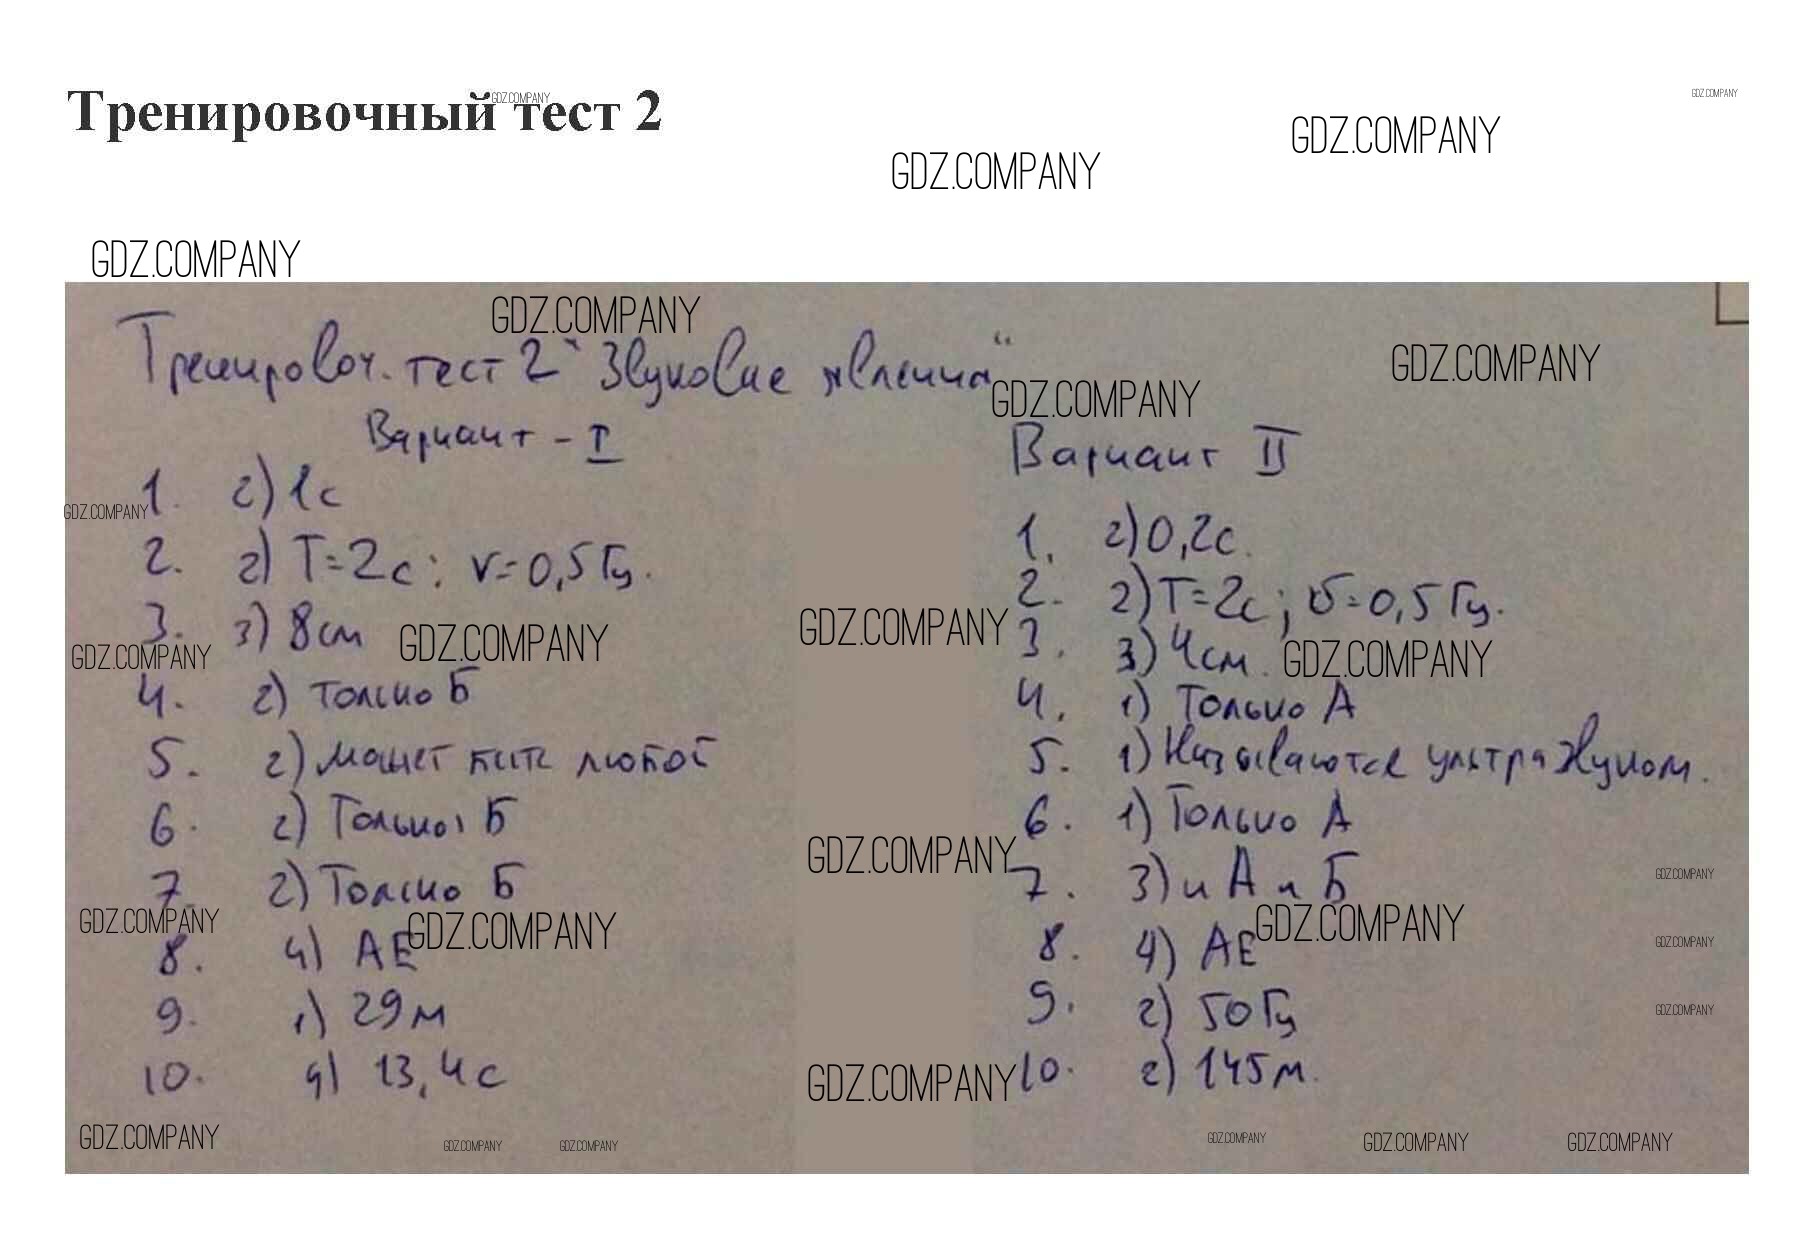 Тренировочный тест 2
Тренировоч. тест 2 "Звуковые явления"
Вариант - I
1. 2) 1с
2. 2) T=2с; ν=0,5 Гц.
3. 3) 8 см
4. 2) Только Б
5. 2) может быть любой
6. 2) Только Б
7. 2) Только Б
8. 4) АЕ
9. 1) 29 м
10. 4) 13,4 с
Вариант II
1. 2) 0,2 с.
2. 2) T=2с; υ=0,5 Гц.
3. 3) 4 см.
4. 1) Только А
5. 1) Называются ультразвуком.
6. 1) Только А
7. 3) и А и Б
8. 4) АЕ
9. 2) 50 Гц
10. 2) 145 м.
GDZ.COMPANY